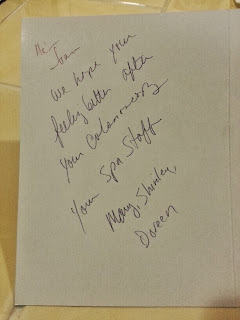 Hi Joan
we hope your
feeling better after
your Colonoscopy
Your Spa Staff
Mary, Shirley,
Doreen